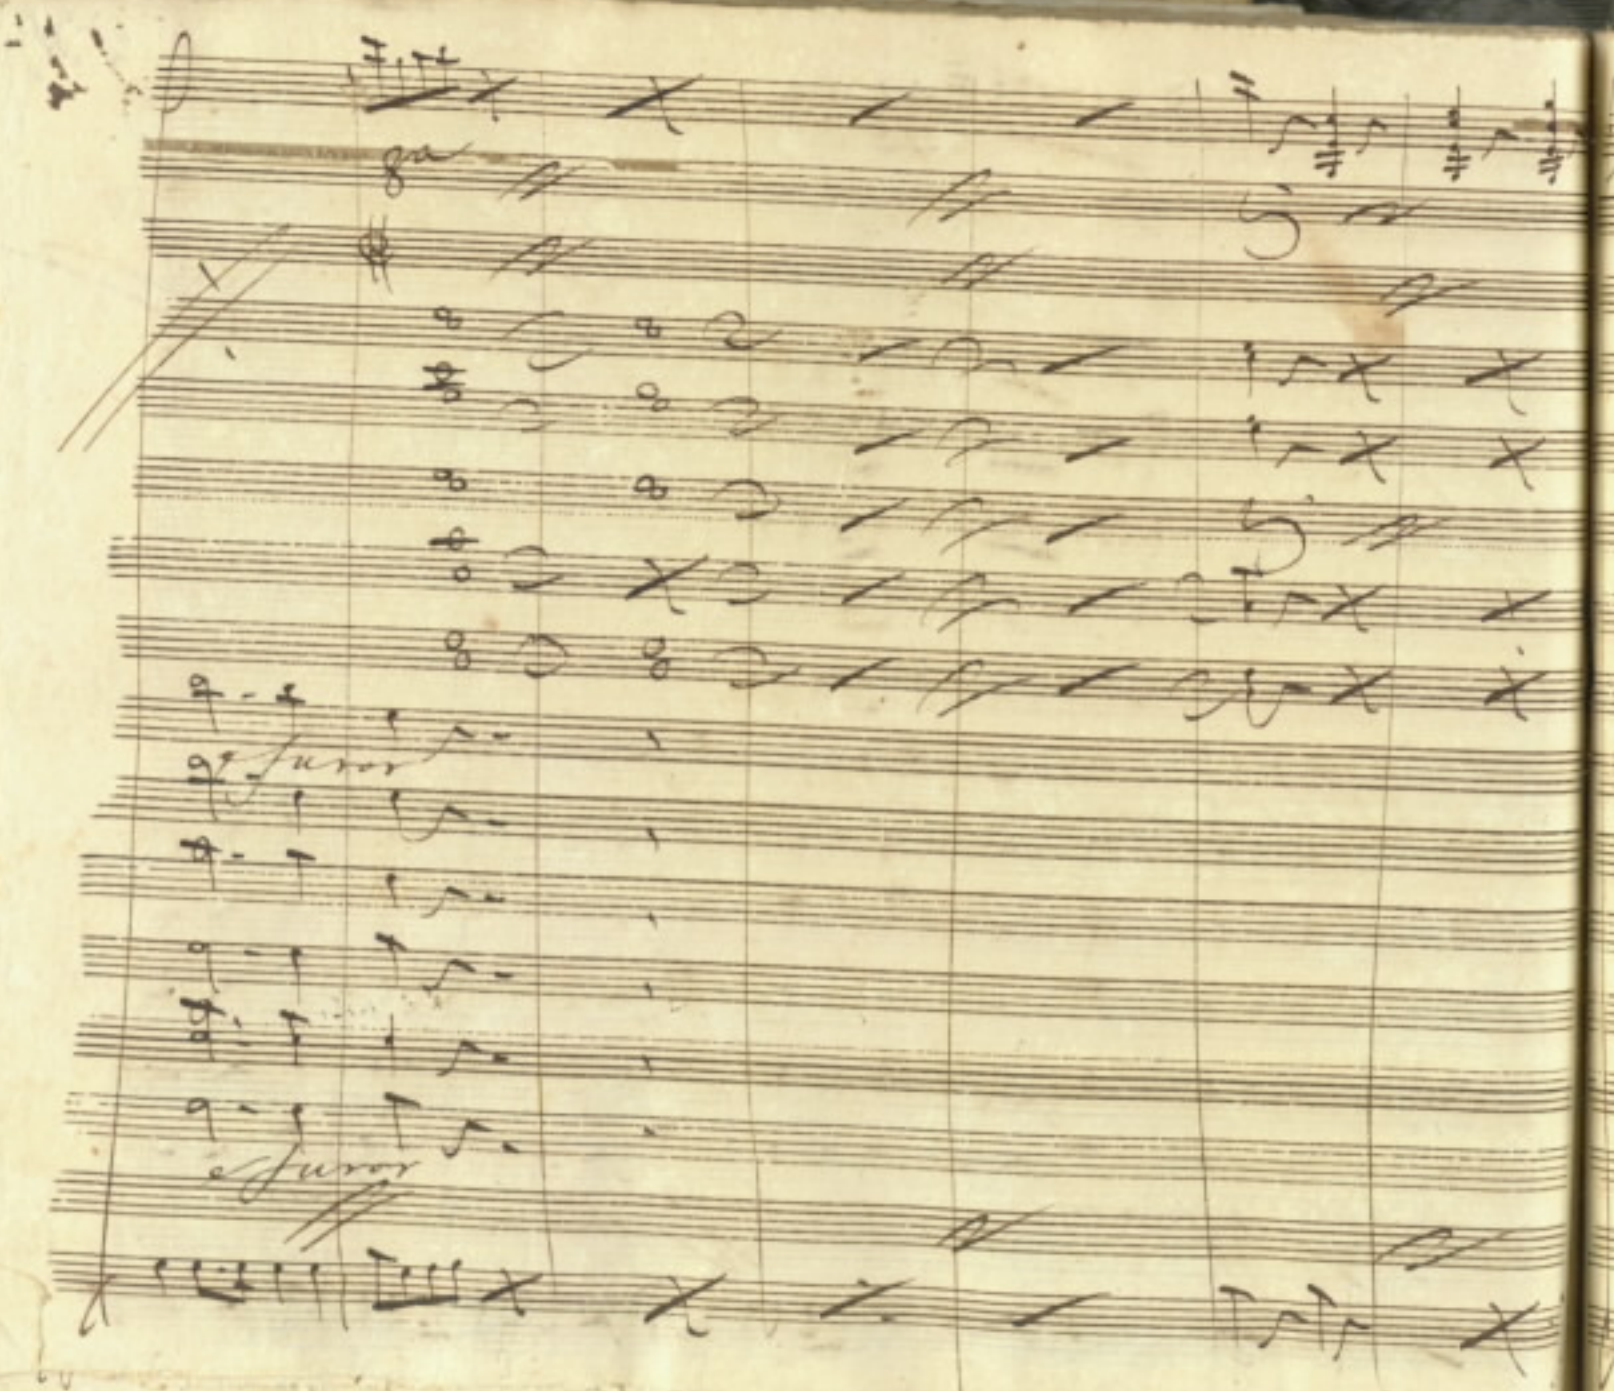 8va
e furor
e furor